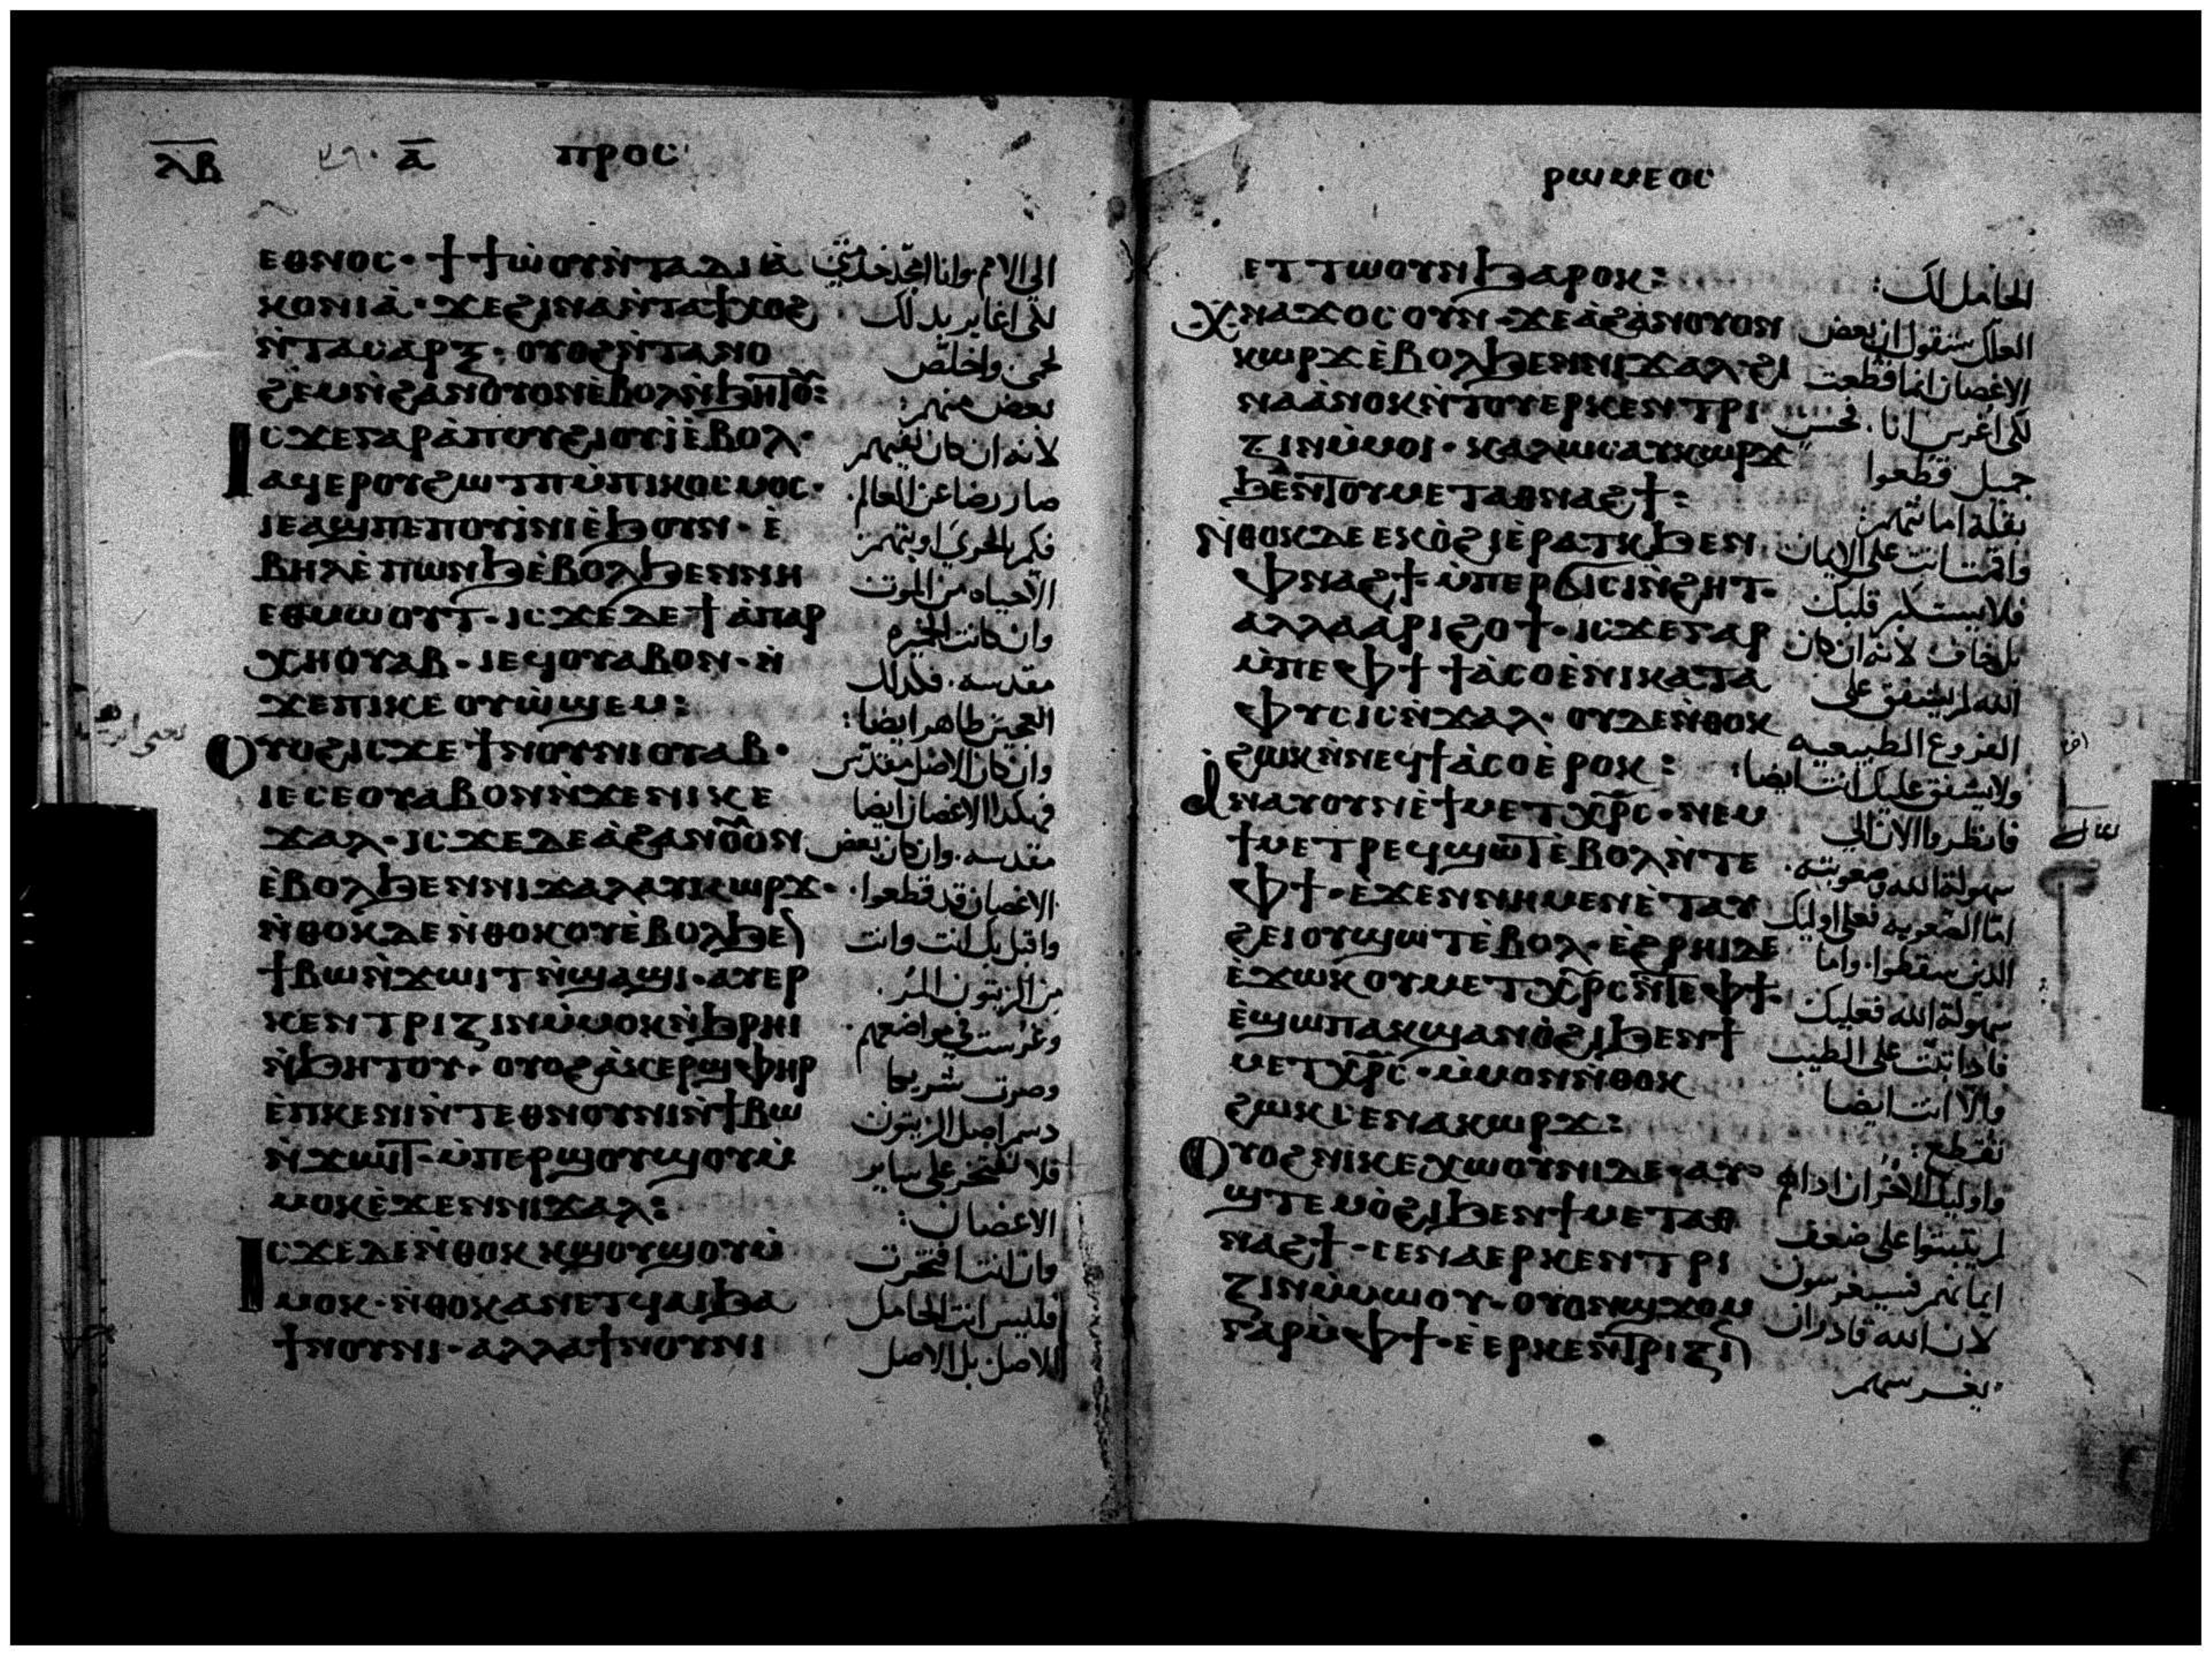 ⲗⲃ ⲁ ⲡⲣⲟⲥ
ⲉⲑⲛⲟⲥ· ϯϯⲱⲟⲩⲛ̀ⲧⲁⲇⲓⲁ̀
ⲕⲟⲛⲓⲁ̀· ϫⲉϩⲓⲛⲁⲛ̀ⲧⲁϯⲭⲟϩ
ⲛ̀ⲧⲁⲥⲁⲣⲝ· ⲟⲩⲟϩⲛ̀ⲧⲁⲛⲟ
ϩⲉⲙⲛ̀ϩⲁⲛⲟⲩⲟⲛⲉ̀ⲃⲟⲗⲛ̀ϧⲏⲧⲟⲩ:
ⲓⲥϫⲉⲅⲁⲣⲁ̀ⲡⲟⲩϩⲓⲟⲩⲓ̀ⲉ̀ⲃⲟⲗ·
ⲁϥⲉⲣⲟⲩϩⲱⲧⲡⲙ̀ⲡⲓⲕⲟⲥⲙⲟⲥ·
ⲓⲉⲁϣⲡⲉⲡⲟⲩⲓ̀ⲛⲓⲉ̀ϧⲟⲩⲛ· ⲉ̀
ⲃⲏⲗⲉ̀ⲡⲱⲛϧⲉ̀ⲃⲟⲗϧⲉⲛⲛⲏ
ⲉⲑⲙⲱⲟⲩⲧ· ⲓⲥϫⲉⲇⲉϯⲁ̀ⲡⲁⲣ
ⲭⲏⲟⲩⲁⲃ· ⲓⲉϥⲟⲩⲁⲃⲟⲛ· ⲛ̀
ϫⲉⲡⲓⲕⲉⲟⲩⲱ̀ϣⲉⲙ:
ⲟⲩⲟϩⲓⲥϫⲉϯⲛⲟⲩⲛⲓⲟⲩⲁⲃ·
ⲓⲉⲥⲉⲟⲩⲁⲃⲟⲛⲛ̀ϫⲉⲛⲓⲕⲉ
ϫⲁⲗ· ⲓⲥϫⲉⲇⲉⲁ̀ϩⲁⲛⲟⲩⲟⲛ
ⲉ̀ⲃⲟⲗϧⲉⲛⲛⲓϫⲁⲗⲁⲩⲕⲱⲣϫ·
ⲛ̀ⲑⲟⲕⲇⲉⲛ̀ⲑⲟⲕⲟⲩⲉ̀ⲃⲟⲗϧⲉⲛ
ϯⲃⲱⲛ̀ϫⲱⲓⲧⲛ̀ϣⲁϣⲓ·ⲁⲩⲉⲣ
ⲕⲉⲛⲧⲣⲓⲍⲓⲛⲙ̀ⲙⲟⲕⲛ̀ϧⲣⲏⲓ
ⲛ̀ϧⲏⲧⲟⲩ· ⲟⲩⲟϩⲁ̀ⲕⲉⲣϣⲫⲏⲣ
ⲉ̀ⲡⲕⲉⲛⲓⲛ̀ⲧⲉⲑⲛⲟⲩⲛⲓⲛ̀ϯⲃⲱ
ⲛ̀ϫⲱⲓⲧ· ⲙ̀ⲡⲉⲣϣⲟⲩϣⲟⲩⲙ̀
ⲙⲟⲕⲉ̀ϫⲉⲛⲛⲓϫⲁⲗ:
ⲓⲥϫⲉⲇⲉⲛ̀ⲑⲟⲕ ⲕϣⲟⲩϣⲟⲩⲙ̀
ⲙⲟⲕ·ⲛ̀ⲑⲟⲕⲁⲛⲉⲧϥⲁⲓϧⲁ
ϯⲛⲟⲩⲛⲓ·ⲁⲗⲗⲁϯⲛⲟⲩⲛⲓ
الى الامم وانا امجد خدمتي
لكي اغاير بذلك
لحمي واخلص
بعض منهم:
لانه ان كان نفيهم
صار رضا عن العالم.
فكم بالحري اوبتهم
الا حياه من الموت
وان كانت الخيره
مقدسه. فكذلك
العجين طاهر ايضا:
وان كان الاصل مقدس
فهكذا الاغصان ايضا
مقدسه. وان كان بعض
الاغصان قد قطعوا.
واقبل بك انت وانت
من الزيتون المر.
وغرست في مواضعهم.
وصرت شريكا
دسم اصل الزيتون
فلا تفتخر على ساير
الاغصان:
وان انت افتخرت
فليس انت الحامل
للاصل. بل الاصل
ⲣⲱⲙⲉⲟⲥ
ⲉⲧⲧⲱⲟⲩⲛϧⲁⲣⲟⲕ:
ⲭⲛⲁϫⲟⲥⲟⲩⲛ·ϫⲉⲁ̀ϩⲁⲛⲟⲩⲟⲛ
ⲕⲱⲣϫⲉ̀ⲃⲟⲗϧⲉⲛⲛⲓϫⲁⲗ·ϩⲓ
ⲛⲁⲁ̀ⲛⲟⲕⲛ̀ⲧⲟⲩⲉⲣⲕⲉⲛⲧⲣⲓ
ⲍⲓⲛⲙ̀ⲙⲟⲓ· ⲕⲁⲗⲱⲥⲁⲩⲕⲱⲣϫ
ϧⲉⲛⲧⲟⲩⲙⲉⲧⲁⲑⲛⲁϩϯ:
ⲛ̀ⲑⲟⲕⲇⲉⲉⲕⲟ̀ϩⲓⲉ̀ⲣⲁⲧⲕϧⲉⲛ
ⲫⲛⲁϩϯ·ⲙ̀ⲡⲉⲣϭⲓⲥⲓⲛ̀ϩⲏⲧ·
ⲁⲗⲗⲁⲁⲣⲓϩⲟϯ·ⲓⲥϫⲉⲅⲁⲣ
ⲙ̀ⲡⲉⲫϯ ϯⲁ̀ⲥⲟⲉ̀ⲛⲓⲕⲁⲧⲁ
ⲫⲩⲥⲓⲥⲛ̀ϫⲁⲗ· ⲟⲩⲇⲉⲛ̀ⲑⲟⲕ
ϩⲱⲕⲛ̀ⲛⲉϥϯⲁ̀ⲥⲟⲉ̀ⲣⲟⲕ:
ⲁ̀ⲛⲁⲩⲟⲩⲛⲉ̀ϯⲙⲉⲧⲭⲣⲥ·ⲛⲉⲙ
ϯⲙⲉⲧⲣⲉϥϣⲱⲧⲉ̀ⲃⲟⲗⲛ̀ⲧⲉ
ⲫϯ·ⲉϫⲉⲛⲛⲏⲙⲉⲛⲉ̀ⲧⲁⲩ
ϩⲉⲓⲟⲩϣⲱⲧⲉ̀ⲃⲟⲗ·ⲉ̀ϩⲣⲏⲓⲇⲉ
ⲉ̀ϫⲱⲕⲟⲩⲙⲉⲧⲭⲣⲥⲛ̀ⲧⲉⲫϯ·
ⲉ̀ϣⲱⲡⲁⲕϣⲁⲛⲟ̀ϩⲓϧⲉⲛϯ
ⲙⲉⲧⲭⲣⲥ·ⲙ̀ⲙⲟⲛⲛ̀ⲑⲟⲕ
ϩⲱⲕⲥⲉⲛⲁⲕⲱⲣϫ:
ⲟⲩⲟϩⲛⲓⲕⲉⲭⲱⲟⲩⲛⲓⲇⲉ·ⲁⲩ
ϣⲧⲉⲙⲟ̀ϩⲓϧⲉⲛϯⲙⲉⲧⲁⲑ
ⲛⲁϩϯ·ⲥⲉⲛⲁⲉⲣⲕⲉⲛⲧⲣⲓ
ⲍⲓⲛⲙ̀ⲙⲱⲟⲩ·ⲟⲩⲟⲛϣϫⲟⲙ
ⲅⲁⲣⲙ̀ⲫϯ·ⲉ̀ⲉⲣⲕⲉⲛⲧⲣⲓⲍⲓⲛ
الحامل لك:
لعلك ستقول ان بعض
الاغصان انما قطعت
لكي اغرس انا. فحسن
جميل قطعوا
بقلة امانتهم
واقمت انت على الايمان
فلا يستكبر قلبك
بل خاف لانه ان كان
الله لم يشفق على
الفروع الطبيعيه
ولا يشفق عليك انت ايضا:
فانظروا الان الى
سهولة الله وصعوبته.
اما الصعوبه فعلى اوليك
الذين سقطوا. واما
سهولة الله فعليك
فاذا ثبت على الطيب
والا انت ايضا
تقطع:
واوليك الاخران اذا هم
لم يثبتوا على ضعف
ايمانهم فسيغرسون
لان الله قادر ان
يغرسهم